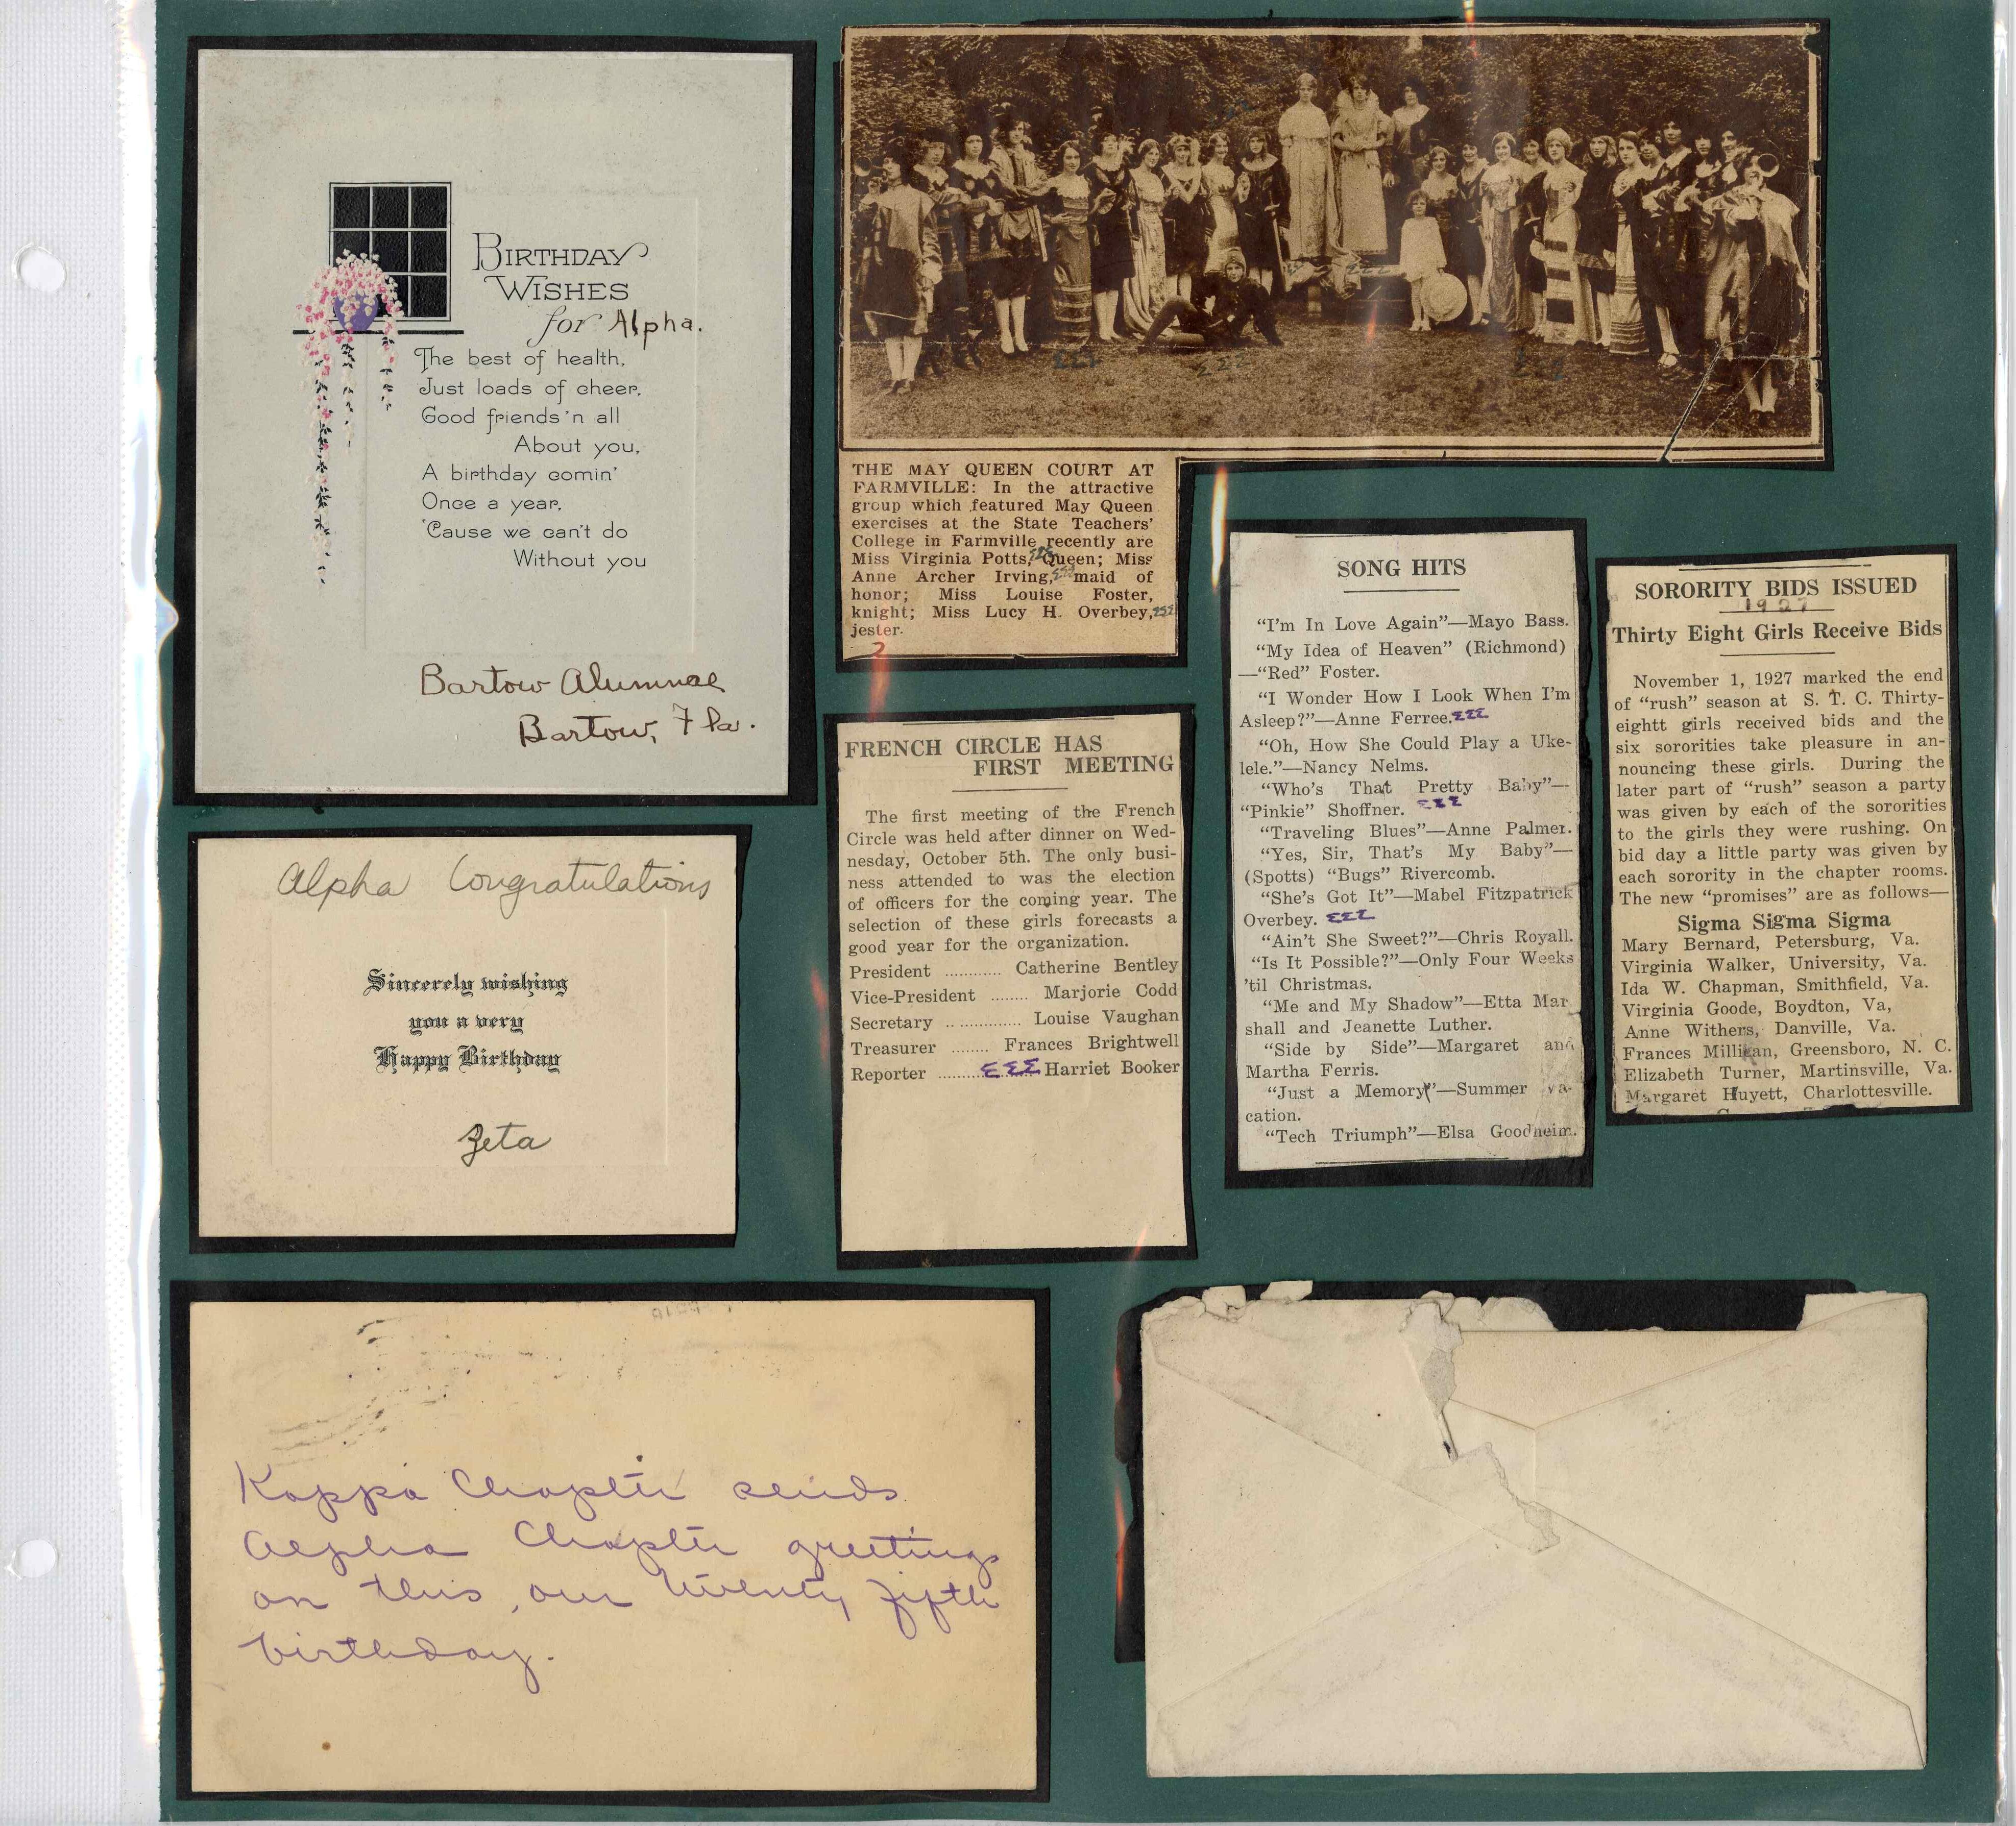 BIRTHDAY
WISHES
for Alpha.
The best of health,
Just loads of cheer,
Good friends 'n all
About you,
A birthday comin'
Once a year,
'Cause we can't do
Without you
Bartow Alumnae
Bartow, Fla.
THE MAY QUEEN COURT AT
FARMVILLE: In the attractive
group which featured May Queen
exercises at the State Teachers'
College in Farmville recently are
Miss Virginia Potts, ΣΣΣ Queen; Miss
Anne Archer Irving, ΣΣΣ maid of
honor; Miss Louise Foster,
knight; Miss Lucy H. Overbey, ΣΣΣ
jester.
ΣΣΣ
ΣΣΣ
ΣΣΣ
Alpha Congratulations
Sincerely wishing
you a very
Happy Birthday
Zeta
FRENCH CIRCLE HAS
FIRST MEETING
The first meeting of the French
Circle was held after dinner on Wed-
nesday, October 5th. The only busi-
ness attended to was the election
of officers for the coming year. The
selection of these girls forecasts a
good year for the organization.
President ............ Catherine Bentley
Vice-President ........ Marjorie Codd
Secretary ................ Louise Vaughan
Treasurer ........ Frances Brightwell
Reporter ......... ΣΣΣ Harriet Booker
SONG HITS
"I'm In Love Again"—Mayo Bass.
"My Idea of Heaven" (Richmond)
—"Red" Foster.
"I Wonder How I Look When I'm
Asleep?"—Anne Ferree. ΣΣΣ
"Oh, How She Could Play a Uke-
lele."—Nancy Nelms.
"Who's That Pretty Baby"—
"Pinkie" Shoffner. ΣΣΣ
"Traveling Blues"—Anne Palmer.
"Yes, Sir, That's My Baby"—
(Spotts) "Bugs" Rivercomb.
"She's Got It"—Mabel Fitzpatrick
Overbey. ΣΣΣ
"Ain't She Sweet?"—Chris Royall.
"Is It Possible?"—Only Four Weeks
'til Christmas.
"Me and My Shadow"—Etta Mar
shall and Jeanette Luther.
"Side by Side"—Margaret and
Martha Ferris.
"Just a Memory"—Summer va-
cation.
"Tech Triumph"—Elsa Goodheim.
SORORITY BIDS ISSUED
1927
Thirty Eight Girls Receive Bids
November 1, 1927 marked the end
of "rush" season at S. T. C. Thirty-
eightt girls received bids and the
six sororities take pleasure in an-
nouncing these girls. During the
later part of "rush" season a party
was given by each of the sororities
to the girls they were rushing. On
bid day a little party was given by
each sorority in the chapter rooms.
The new "promises" are as follows—
Sigma Sigma Sigma
Mary Bernard, Petersburg, Va.
Virginia Walker, University, Va.
Ida W. Chapman, Smithfield, Va.
Virginia Goode, Boydton, Va,
Anne Withers, Danville, Va.
Frances Millikan, Greensboro, N. C.
Elizabeth Turner, Martinsville, Va.
Margaret Huyett, Charlottesville.
Kappa Chapter sends
Alpha Chapter greetings
on this, our twenty fifth
birthday.